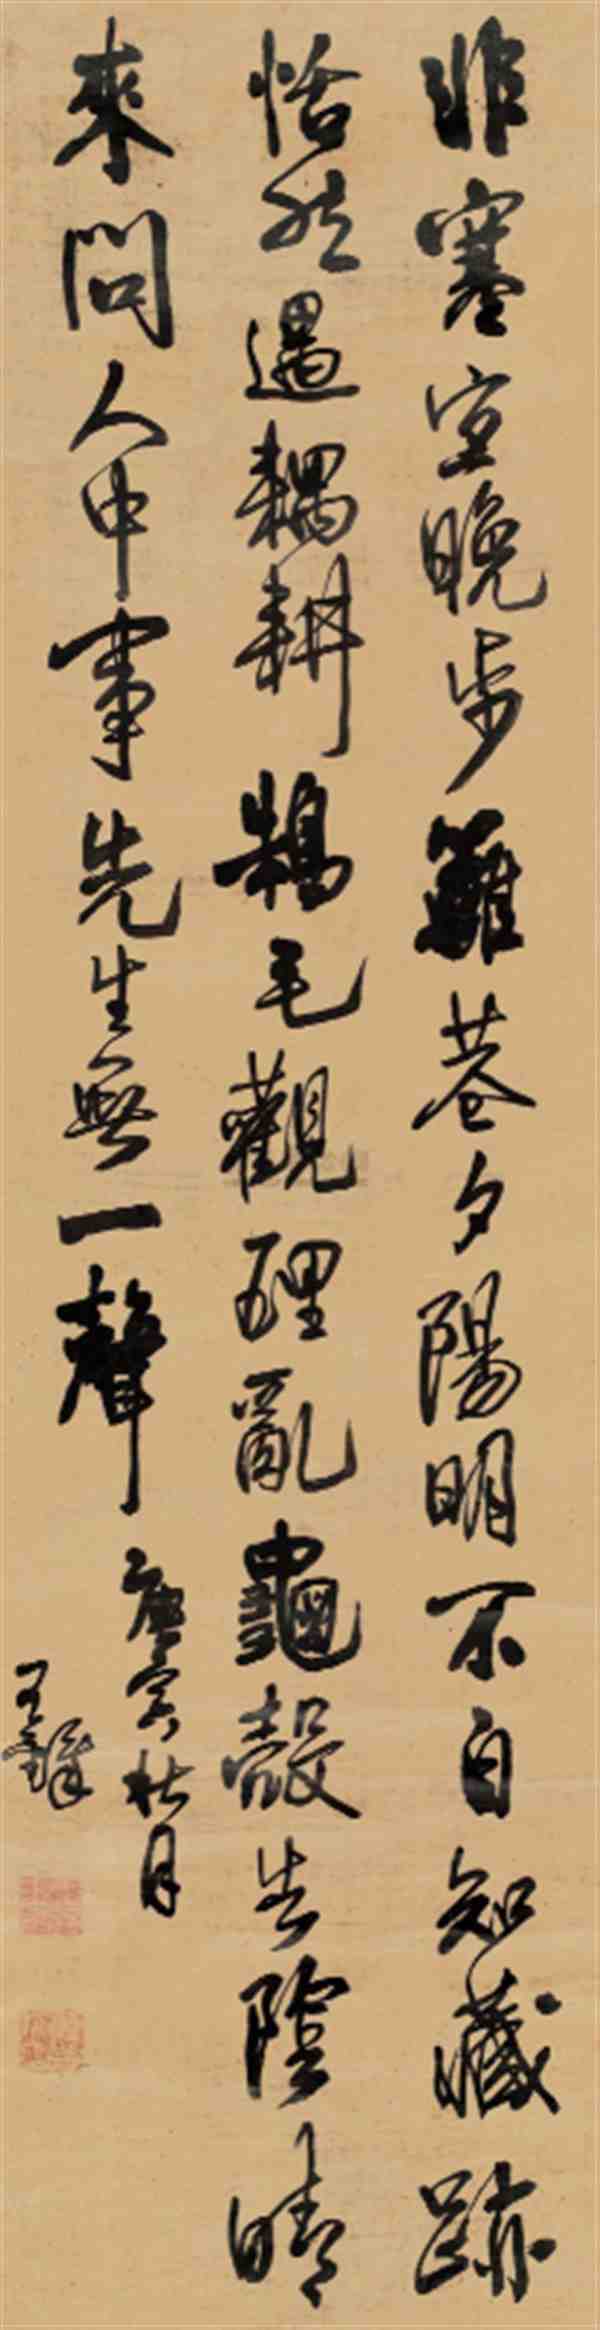 非塞宜晚步籬巷夕陽明不自知藏跡
恬然遇耦耕鵝毛觀理亂龜殼告陰晴
來問人中事先生無一聲
庚寅秋月
王鐸